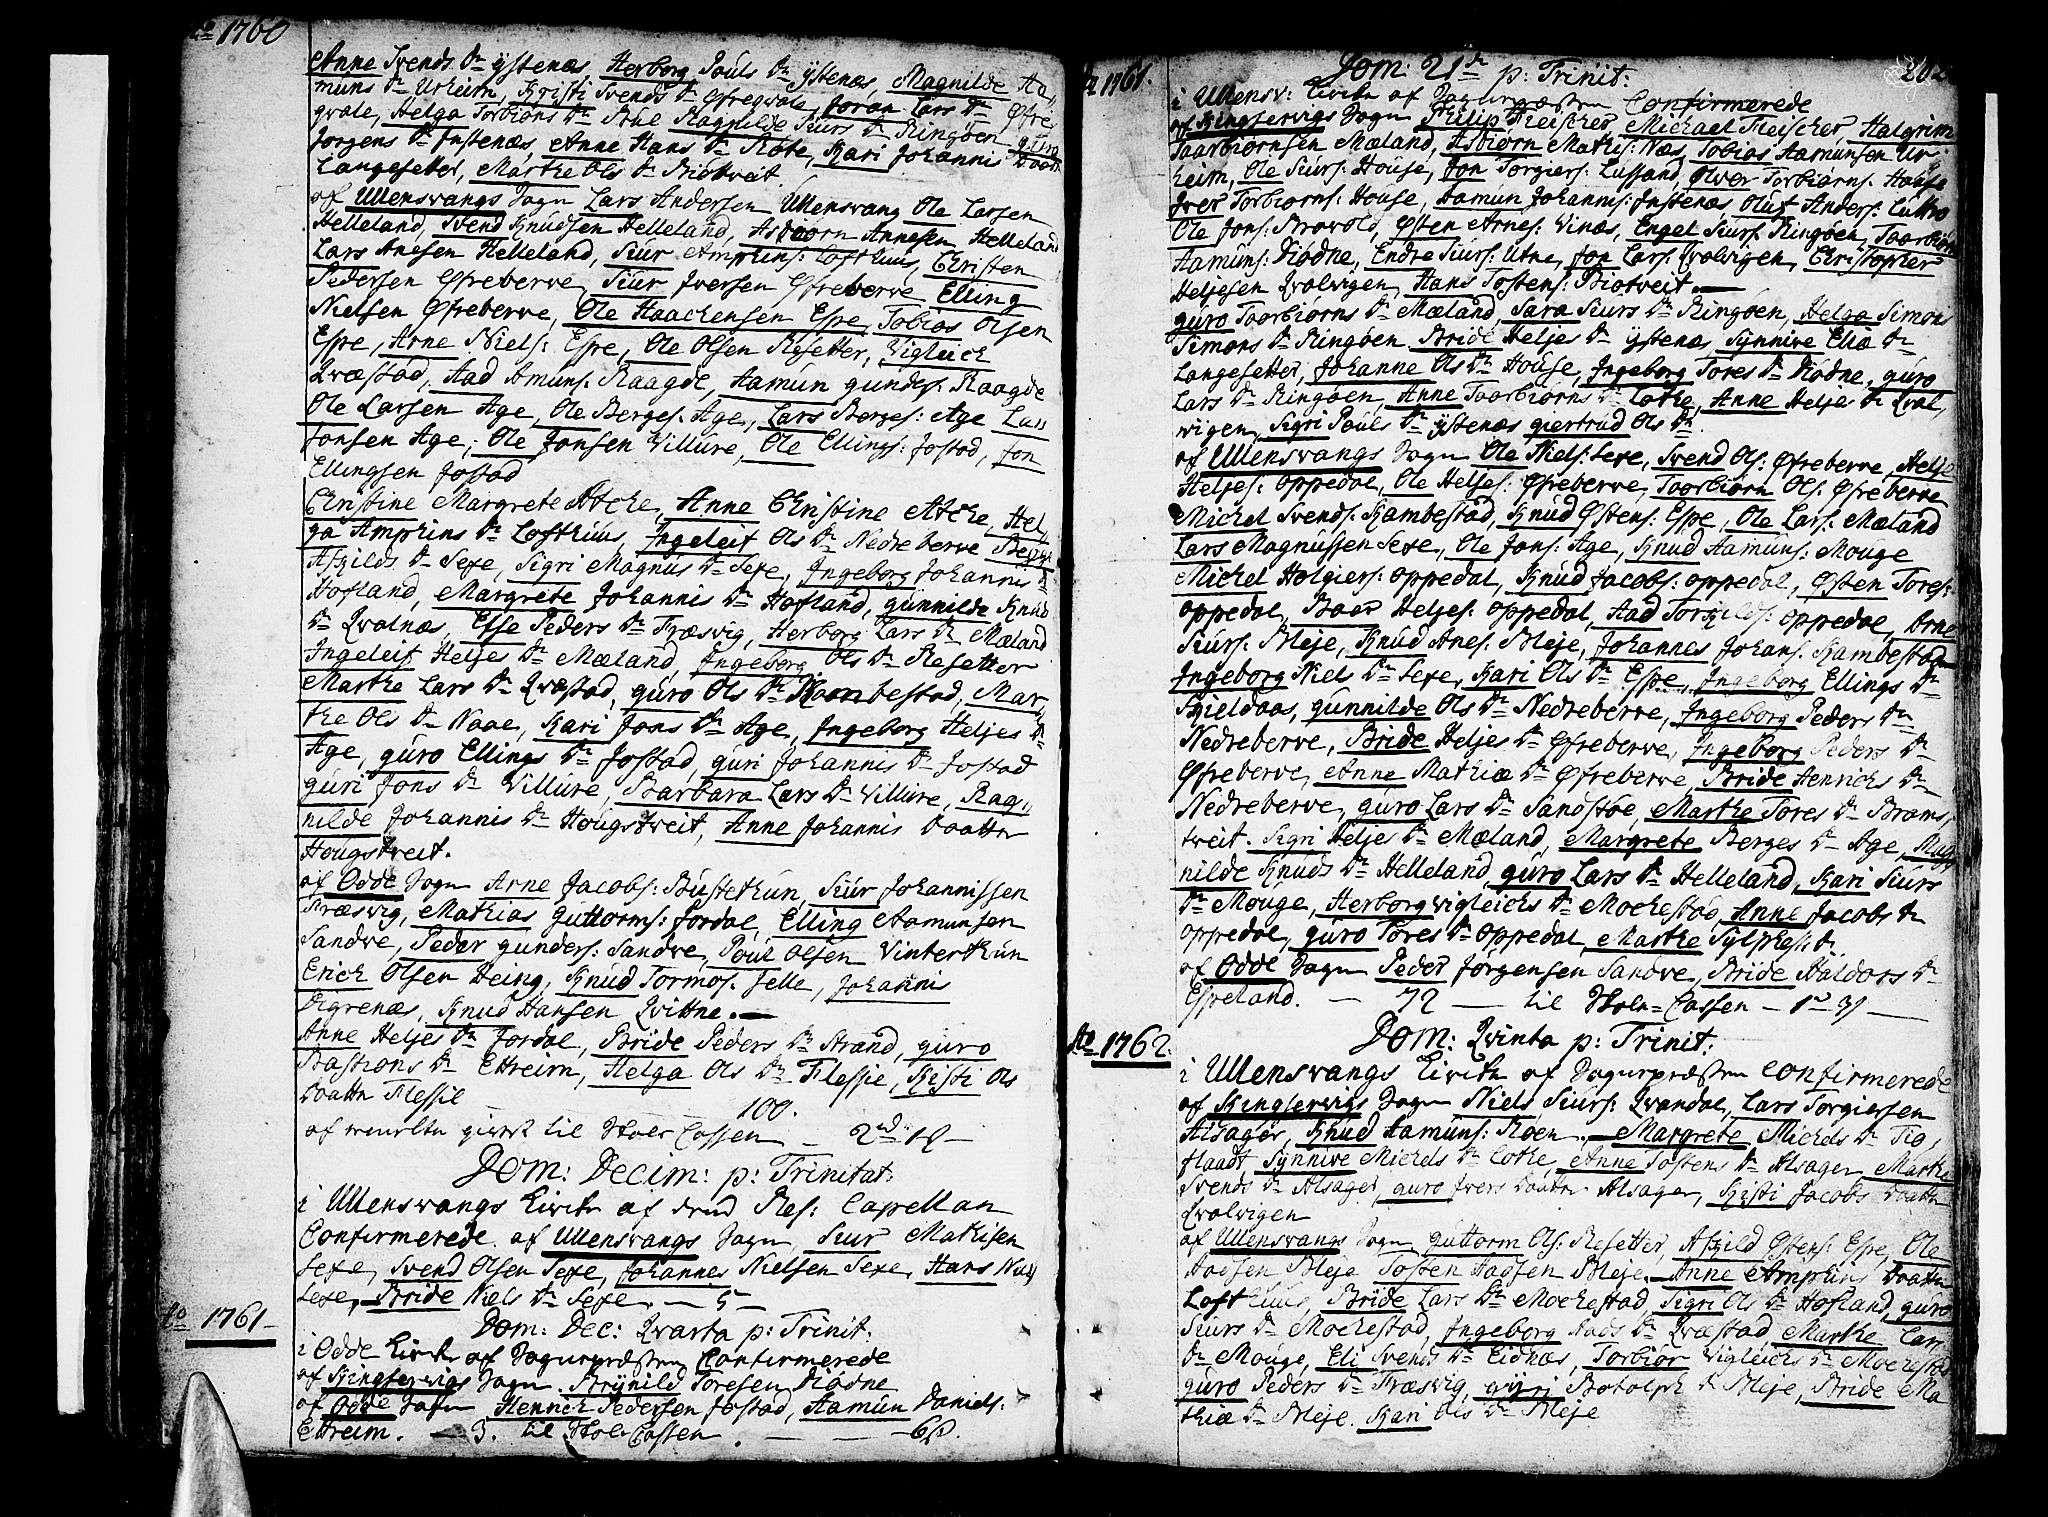 Ao 1760
Anne Svends Dr Ystenæs, Herborg Pouls Dr Ystenæs, Magnilde Aa,
müns Dr Urheim, Kristi Svends Dr Øfreqvale, Joran Lars Dr Øfre,
qvale, Helga Torbiøns Dr Ragnilde Siurs Dr Ringøen guro
Jørgens Dr Instenæs, Anne Hans Dr Røte, Kari Johannis Daatt
Langesetter, Marthe Ols Dr Biotveit.
af Ullensvangs Sogn Lars Andersen Ullensvang Ole Larsen
Helleland, Svend Knudsen Helleland, Asbiorn Annesen, Helleland
Lars Anesen Helleland, Siur Amphins: Lofthuus, Christen
Pedersen Øfreberve, Siur Iversen Øfreberve Elling
Nielsen Øfreberve, Ole Haachensen Espe, Tobias Olsen
Espe, Arne Niels: Espe, Ole Olsen Resetter, Vigleich
Qvæstad, Aad Amuns: Raagde, Aamün gunders: Raagde
Ole Larsen Age, Ole Berges: Age, Lars Berges: Age Lars
Jonsen Age, Ole Jonsen Villure, Ole Ellings: Jostad, Jon
Ellingsen Jostad
Christine Margrete Atche, Anne Christine Atche, Hel,
ga Amphins Dr Lofthuus, Ingeleif Ols Dr Nedreberve
Askilds Dr Sexe, Sigri Magnus Dr Sexe, Ingeborg Johannis Dr
Hofland, Margrete Johannis Dr Hofland, gunnilde Knud
Dr Qvalnæs, Esse Peders Dr Træsvig, Herborg Lars Dr Mæland
Ingeleif Heljes Dr Mæland, Ingeborg Ols Dr Resetter
Marthe Lars Dr Qvæstad, guro Ols Dr Kambestad, Mar,
the Ols Dr Naae, Kari Jons Dr Age, Ingeborg Heljes Dr
Age, guro Ellings Dr Jostad, guri Johannis Dr Jostad
guri Jons Dr Villure, Barbara Lars Dr Villure, Rag,
nilde Johannis Dr Hougstveit, Anne Johannis Daatter
Hougstveit.
af Odde Sogn Arne Jacobs: Bustethun, Siur Johannissen
Træsvig, Mathias Guttorms: Jordal, Elling Aamunsen
Sandve, Peder gunders: Sandve, Poul Olsen Vinterthun
Erich Olsen Deing, Knud Tormos: Selle, Johannis
Digrenæs, Knud Hansen Qvittne.
Anne Heljes Dr Jordal, Bride Peders Dr Strand, guro
Bastians Dr Ettreim, Helga Ols Dr Flessie, Kisti Ols
Daatter Flessie 100.
til Skole Cassen
Dom: Decim: p: Trinitat:
i Ullensvangs Kirke af Res: Capellan
Confirmerede af Ullensvangs Sogn, Siur Mathisen
Sexe, Svend Olsen Sexe, Johannes Nielsen Sexe, Hans
Sexe, Bride Niels Dr Sexe — 5 —
Ao 1761
Dom: Dec: Qvarta p: Trinit:
i Odde Kirke af Sognepræsten Confirmerede
af Kingservigs Sogn Brynild Toresen Diødne
af Odde Sogn Henrich Pedersen Jostad, Aamün Daniels:
Ettreim. — 3. til Skole Cassen
Ao 1761.
Dom: 21de p: Trinit:
i Ullensv: Kirke af Sognepræsten Confirmerede
af Kingservigs Sogn Philip Fleischer, Michael Fleischer, Halgrim
Taarbiørnsen Mæland, Asbiørn Mathis: Næs, Tobias Aamunsen Ur
heim, Ole Siurs: House, Jon Torgiers: Lussand, Olver Torbiørns: House
Iver Torbiørns: House, Aamün Johannis: Instenæs, Oluf Anders: Lutro
Ole Jons: Bravold, Østen Arnes: Vinæs, Engel Siurs: Ringøen, Taarbiørn
Aamuns: Diødne, Endre Siurs: Utne, Jon Lars: Qvalvigen, Christopher
Heljesen Qvalvigen, Hans Tostens: Biotveit.
guro Taarbiørns Dr Mæland, Sara Siurs Dr Ringøen, Helga Simons
Simons Dr Ringøen Bride Heljes Dr Ystenæs Synnive Eliæ Dr
Langesetter, Johanne Ols Dr House, Ingeborg Tores Dr Diødne, guro
Lars Dr Ringøen, Anne Taarbiørns Dr Lothe, Anne Heljes Dr Qval,
vigen, Sigri Pouls Dr Ystenæs giertrud Ols Dr.
af Ullensvangs Sogn Ole Niels: Sexe, Svend Ols: Øfreberve, Helje
Heljes: oppedal, Ole Heljes: Øfreberve, Taarbiørn Ols: Øfreberve
Michel Svends: Kambestad, Knud Østens: Espe, Ole Lars: Mæland
Lars Magnussen Sexe, Ole Jons: Age, Knud Aamuns: Mouge
Michel Holgiers: oppedal, Knud Jacobs: oppedal, Østen Tores:
oppedal, Baar Heljes: oppedal, Aad Torkilds: oppedal, Arne
Siurs: Bleje, Knud Anes: Bleje, Johannes Johans: Kambestad
Ingeborg Niels Dr Sexe, Kari Ols Dr Espe, Ingeborg Ellings Dr
Skieldaas, gunnilde Ols Dr Nedreberve, Ingeborg Peders Dr
Nedreberve, Bride Heljes Dr Øfreberve, Ingeborg Peders Dr
Øfreberve, Anne Mathiæ Dr Øfreberve, Bride Henrichs Dr
Nedreberve, guro Lars Dr Sandstøe, Marthe Tores Dr Brams,
tveit. Sigri Heljes Dr Mæland, Margrete Berges Dr Age, Rag,
nilde Knuds Dr Helleland, guro Lars Dr Helleland, Kari Siurs
Dr Mouge, Herborg Vigleichs Dr Mochestad, Anne Jacobs Dr
oppedal, guro Tores Dr oppedal, Marthe Sylphest: Dr.
af Odde Sogn Peder Jørgensen Sandve, Bride Haldors Dr
Espeland. — 72 — til Skole-Cassen —
Ao 1762.
Dom: Qvinta p: Trinit:
i Ullensvangs Kirke af Sognepræsten confirmerede
af Kingservigs Sogn Niels Siurs: Qvandal, Lars Torgiersen
Alsager, Knud Aamuns: Roen. — Margrete Michels Dr Tig,
flaadt Synnive Michels Dr Lothe, Anne Tostens Dr Alsager Marthe
Svends Dr Alsager, guro Ivers Daatter Alsager, Kisti Jacobs Daatter
Qvalvigen
af Ullensvangs Sogn guttorm Ols: Resetter, Askild Østens: Espe, Ole
Aadsen Bleje Tosten Aadsen Bleje. — Anne Amphins Daatter
Lofthuus, Bride Lars Dr Mochestad, Sigri Ols Dr Hofland, guro
Siurs Dr Mochestad, Ingeborg Aads Dr Qvæstad, Marthe Lars
Dr Mouge, Eli Svends Dr Eidnæs, Torbiør Vigleichs Dr Mochestad
guro Peders Dr Træsvig, gyri Botolph Dr Bleje, Bride Ma
thiæ Dr Bleje. Kari Ols Dr Bleje